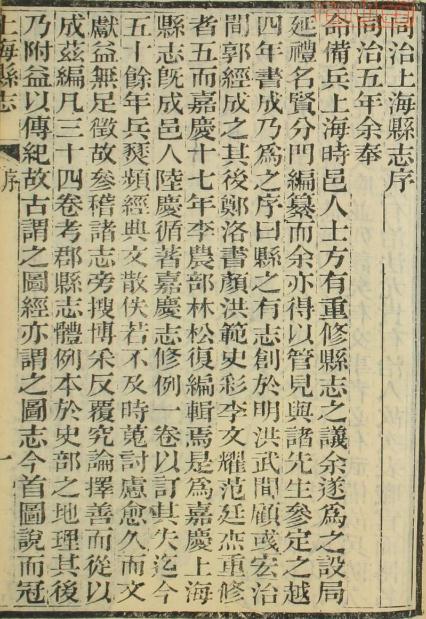 同治上海縣志序
同治五年余奉
命備兵上海時邑人士方有重修縣志之議余遂爲之設局
延禮名賢分門編纂而余亦得以管見與諸先生參定之越
四年書成乃爲之序曰縣之有志創於明洪武間顧彧宏治
間郭經成之其後鄭洛書顏洪範史彩李文耀范廷杰重修
者五而嘉慶十七年李農部林松復編輯焉是爲嘉慶上海
縣志旣成邑人陸慶循著嘉慶志修例一卷以訂其失迄今
五十餘年兵燹頻經典文散佚若不及時蒐討慮愈久而文
獻益無足徵故參稽諸志旁搜博采反覆究論擇善而從以
成茲編凡三十四卷考郡縣志體例本於史部之地理其後
乃附益以傳紀故古謂之圖經亦謂之圖志今首圖說而冠
上海縣志
序
一